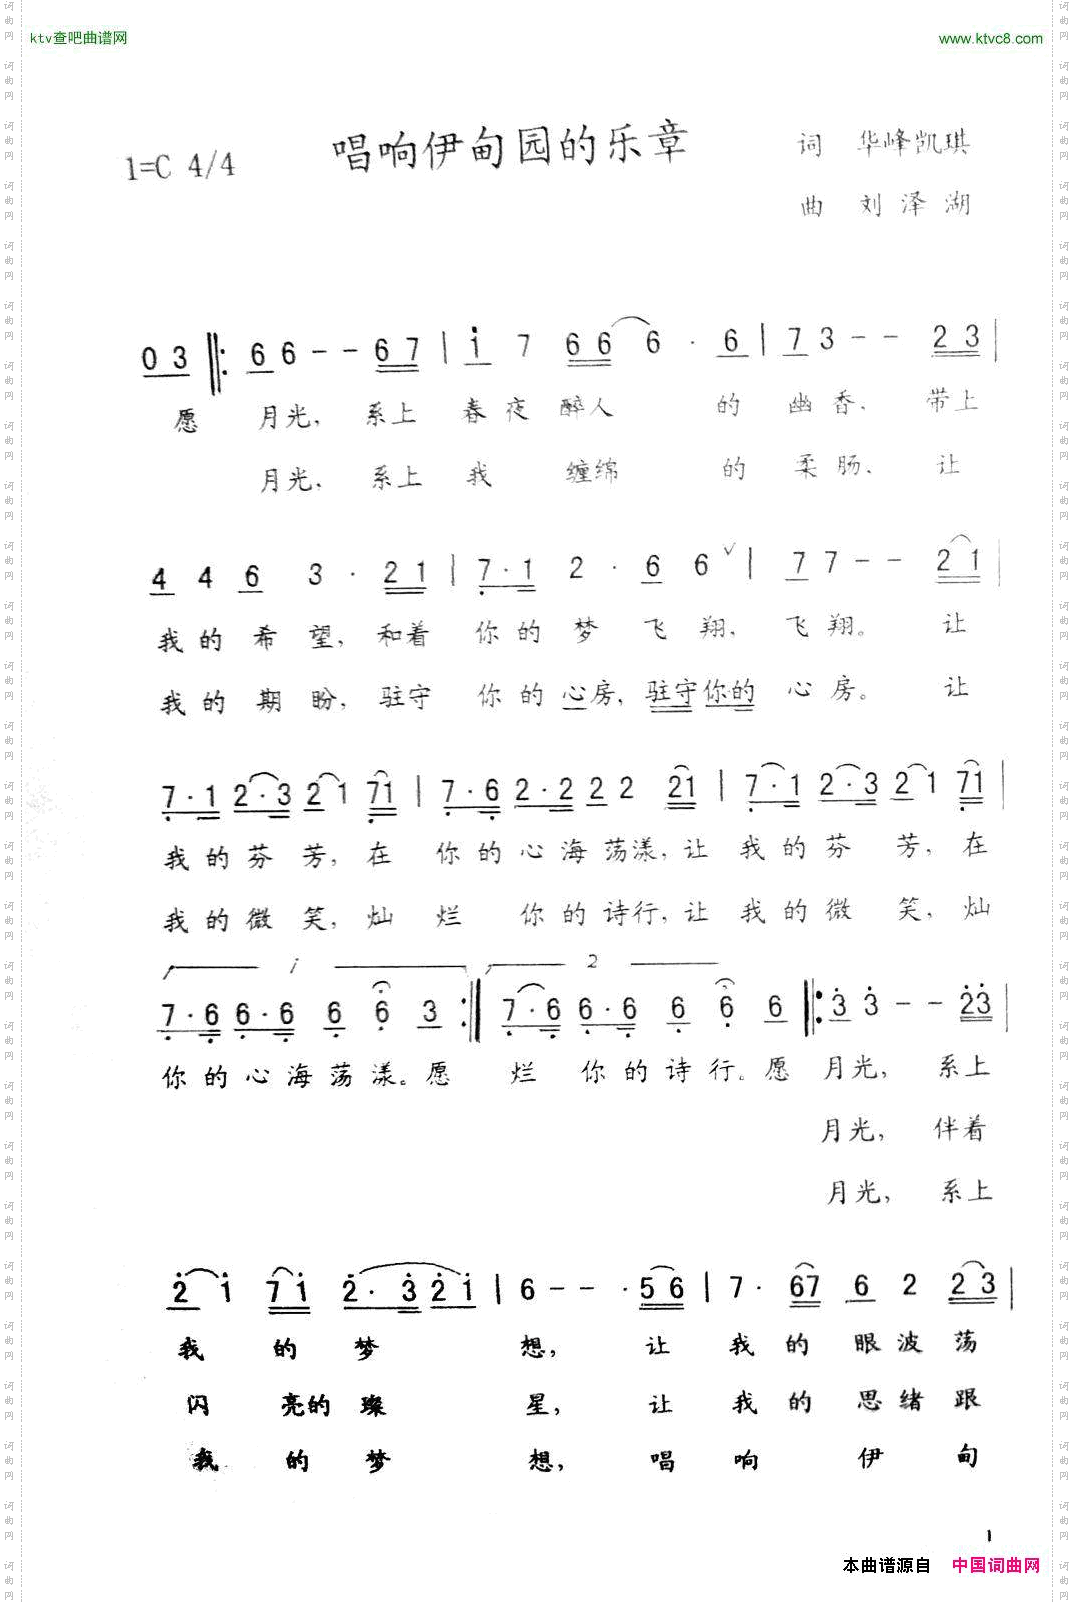 ktv查吧曲谱网
www.ktvc8.com
唱响伊甸园的乐章
1=C 4/4
词 华峰凯琪
曲 刘泽湖
0 3 6 6 - - 6 7 | i 7 6 6 6 · 6 | 7 3 - - 2 3 |
愿 月光, 系上 春夜醉人 的 幽香, 带上
月光, 系上 我 缠绵 的 柔肠, 让
4 4 6 3 · 2 1 | 7 · 1 2 · 6 6 ∨ | 7 7 - - 2 1 |
我的希望, 和着 你的梦飞翔, 飞翔。 让
我的期盼, 驻守 你的心房, 驻守你的 心房。 让
7 · 1 2 · 3 2 1 7 1 | 7 · 6 2 · 2 2 2 2 1 | 7 · 1 2 · 3 2 1 7 1 |
我的芬芳, 在 你的心海荡漾, 让 我的芬芳, 在
我的微笑, 灿烂 你的诗行, 让 我的微笑, 灿
1 2
7 · 6 6 · 6 6 6 3 :‖ 7 · 6 6 · 6 6 6 6 ‖: 3 3 - - 2 3 |
你的心海荡漾。愿 烂 你的诗行。愿 月光, 系上
月光, 伴着
月光, 系上
2 i 7 i 2 · 3 2 i | 6 - - · 5 6 | 7 · 6 7 6 2 2 3 |
我 的 梦 想, 让 我的眼波荡
闪 亮的璨 星, 让 我的思绪跟
我 的 梦 想, 唱 响 伊 甸
1
本曲谱源自 中国词曲网